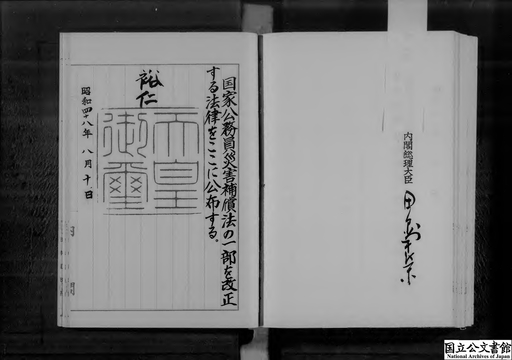 国家公務員災害補償法の一部を改正
する法律をここに公布する。
裕仁
天皇
御璽
昭和四十八年 八月 十日
内閣総理大臣
国立公文書館
National Archives of Japan